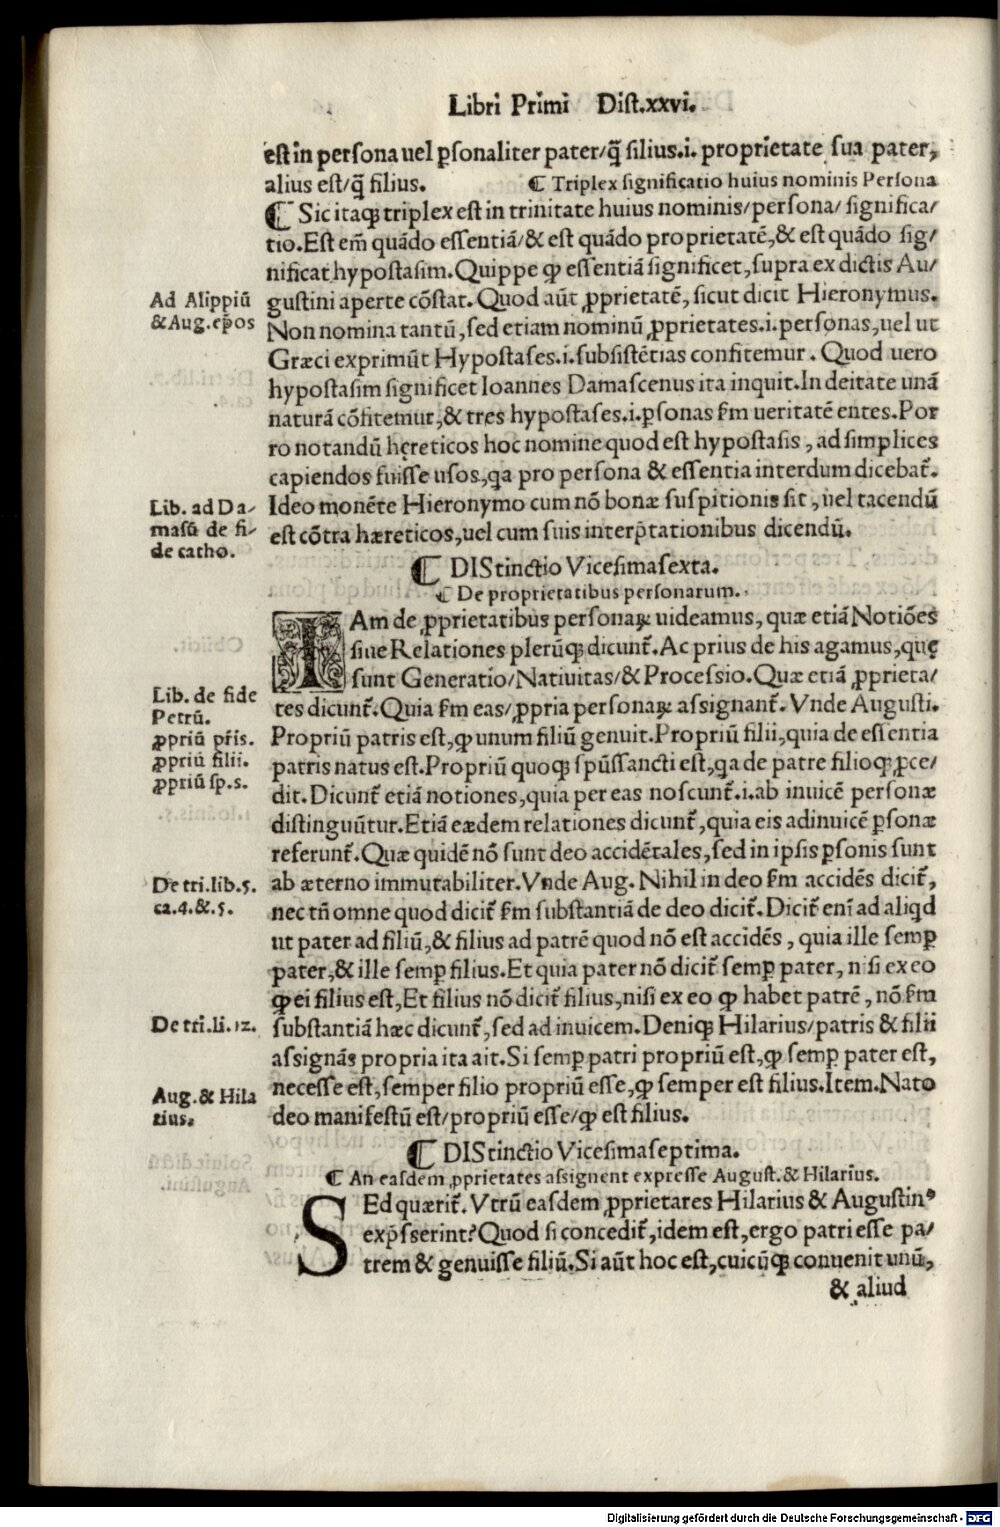 Libri Primi Dist.xxvi.
est in persona uel ꝑsonaliter pater/q̃ filius.i. proprietate sua pater,
alius est/q̃ filius.
¶ Triplex significatio huius nominis Persona
¶ Sic itaqꝫ triplex est in trinitate huius nominis/persona/ significa/
tio. Est em̃ quãdo essentiã/& est quãdo proprietatẽ,& est quãdo sig/
nificat hypostasim. Quippe ꝙ essentiã significet, supra ex dictis Au/
Ad Alippiũ
& Aug.ep̃os
gustini aperte cõstat. Quod aũt ꝓprietatẽ, sicut dicit Hieronymus.
Non nomina tantũ, sed etiam nominũ ꝓprietates.i.personas, uel ut
Græci exprimũt Hypostases.i.subsistẽtias confitemur. Quod uero
hypostasim significet Ioannes Damascenus ita inquit. In deitate unã
naturã cõfitemur,& tres hypostases.i.ꝑsonas s̃m ueritatẽ entes. Por
ro notandũ hęreticos hoc nomine quod est hypostasis, ad simplices
capiendos fuisse usos, qa pro persona & essentia interdum dicebat̃.
Lib. ad Da-
masũ de fi-
de catho.
Ideo monẽte Hieronymo cum nõ bonæ suspitionis sit, uel tacendũ
est cõtra hæreticos, uel cum suis interp̃tationibus dicendũ.
¶ DIStinctio Vicesimasexta.
¶ De proprietatibus personarum.
IAm de ꝓprietatibus personaꝝ uideamus, quæ etiã Notiões
siue Relationes plerũqꝫ dicunt̃. Ac prius de his agamus, quę
sunt Generatio/Natiuitas/& Processio. Quæ etiã ꝓprieta/
Lib. de fide
Petrũ.
ꝓpriũ pr̃is.
ꝓpriũ filii.
ꝓpriũ sp.s.
tes dicunt̃. Quia s̃m eas/ꝓpria personaꝝ assignant̃. Vnde Augusti.
Propriũ patris est, ꝙ unum filiũ genuit. Propriũ filii, quia de essentia
patris natus est. Propriũ quoqꝫ spũssancti est, qa de patre filioqꝫ ꝓce/
dit. Dicunt̃ etiã notiones, quia per eas noscunt̃.i.ab inuicẽ personæ
distinguũtur. Etiã eædem relationes dicunt̃, quia eis adinuicẽ ꝑsonæ
referunt̃. Quæ quidẽ nõ sunt deo accidẽtales, sed in ipsis ꝑsonis sunt
De tri.lib.5.
ca.4.&.5.
ab æterno immutabiliter. Vnde Aug. Nihil in deo s̃m accidẽs dicit̃,
nec tñ omne quod dicit̃ s̃m substantiã de deo dicit̃. Dicit̃ enĩ ad aliqd
ut pater ad filiũ,& filius ad patrẽ quod nõ est accidẽs, quia ille semꝑ
pater,& ille semꝑ filius. Et quia pater nõ dicit̃ semꝑ pater, nisi ex eo
ꝙ ei filius est, Et filius nõ dicit̃ filius, nisi ex eo ꝙ habet patrẽ, nõ s̃m
De tri.li.12.
substantiã hæc dicunt̃, sed ad inuicem. Deniqꝫ Hilarius/patris & filii
assignãs propria ita ait. Si semꝑ patri propriũ est, ꝙ semꝑ pater est,
Aug.& Hila
rius.
necesse est, semper filio propriũ esse, ꝙ semper est filius. Item. Nato
deo manifestũ est/propriũ esse/ꝙ est filius.
¶ DIStinctio Vicesimaseptima.
¶ An easdem ꝓprietates assignent expresse August.& Hilarius.
SEd quærit̃. Vtrũ easdem ꝓprietates Hilarius & Augustinꝰ
exp̃sserint? Quod si concedit̃, idem est, ergo patri esse pa/
trem & genuisse filiũ. Si aũt hoc est, cuicũqꝫ conuenit unũ,
& aliud
Digitalisierung gefördert durch die Deutsche Forschungsgemeinschaft - DFG